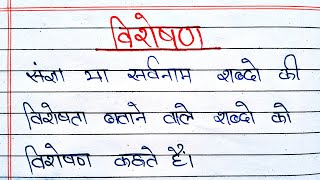 विशेषण
संज्ञा या सर्वनाम शब्दो की
विशेषता बताने वाले शब्दो को
विशेषण कहते हैं।